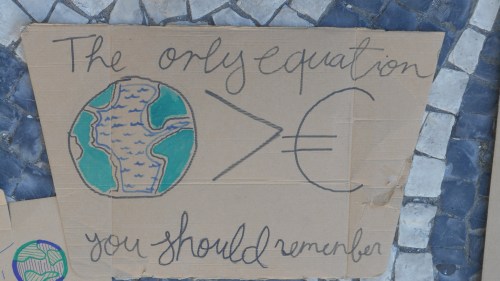 The only equation
> €
you should remember